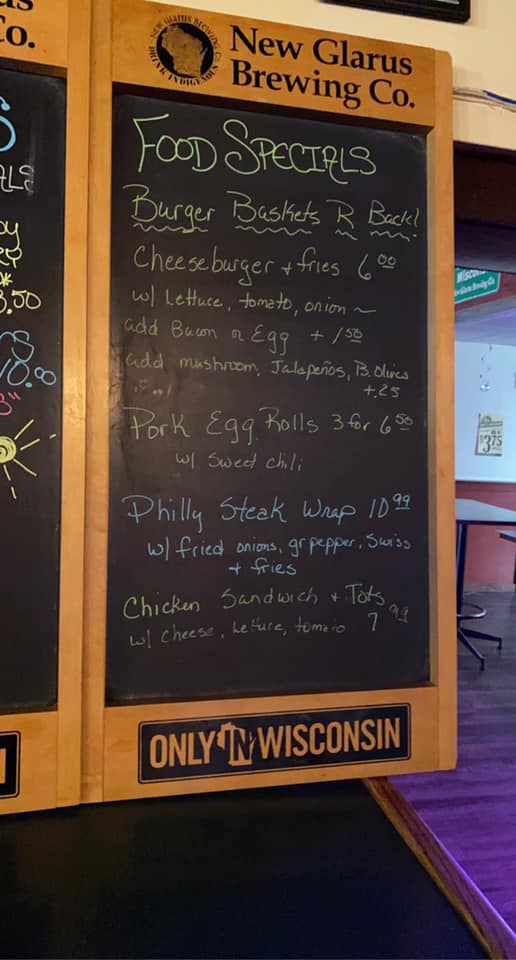 New Glarus
Brewing Co.
NEW GLARUS BREWING CO.
DRINK INDIGENOUS
FOOD SPECIALS
Burger Baskets R Back!
Cheeseburger + fries 6.00
w/ Lettuce, tomato, onion ~
add Bacon or Egg + 1.50
add mushroom, Jalapeños, B. Olives
+.25
Pork Egg Rolls 3 for 6.50
w/ Sweet chili
Philly Steak Wrap 10.99
w/ fried onions, gr pepper, Swiss
+ fries
Chicken Sandwich + Tots
w/ cheese, lettuce, tomato 7.99
ONLY IN WISCONSIN
Co.
3.50
$3.75